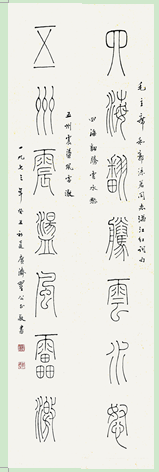 毛主席和郭沫若同志滿江紅詞句
四海翻騰雲水怒
四海翻騰雲水怒
五州震盪風雷激
五州震盪風雷激
一九七三年癸丑初夏